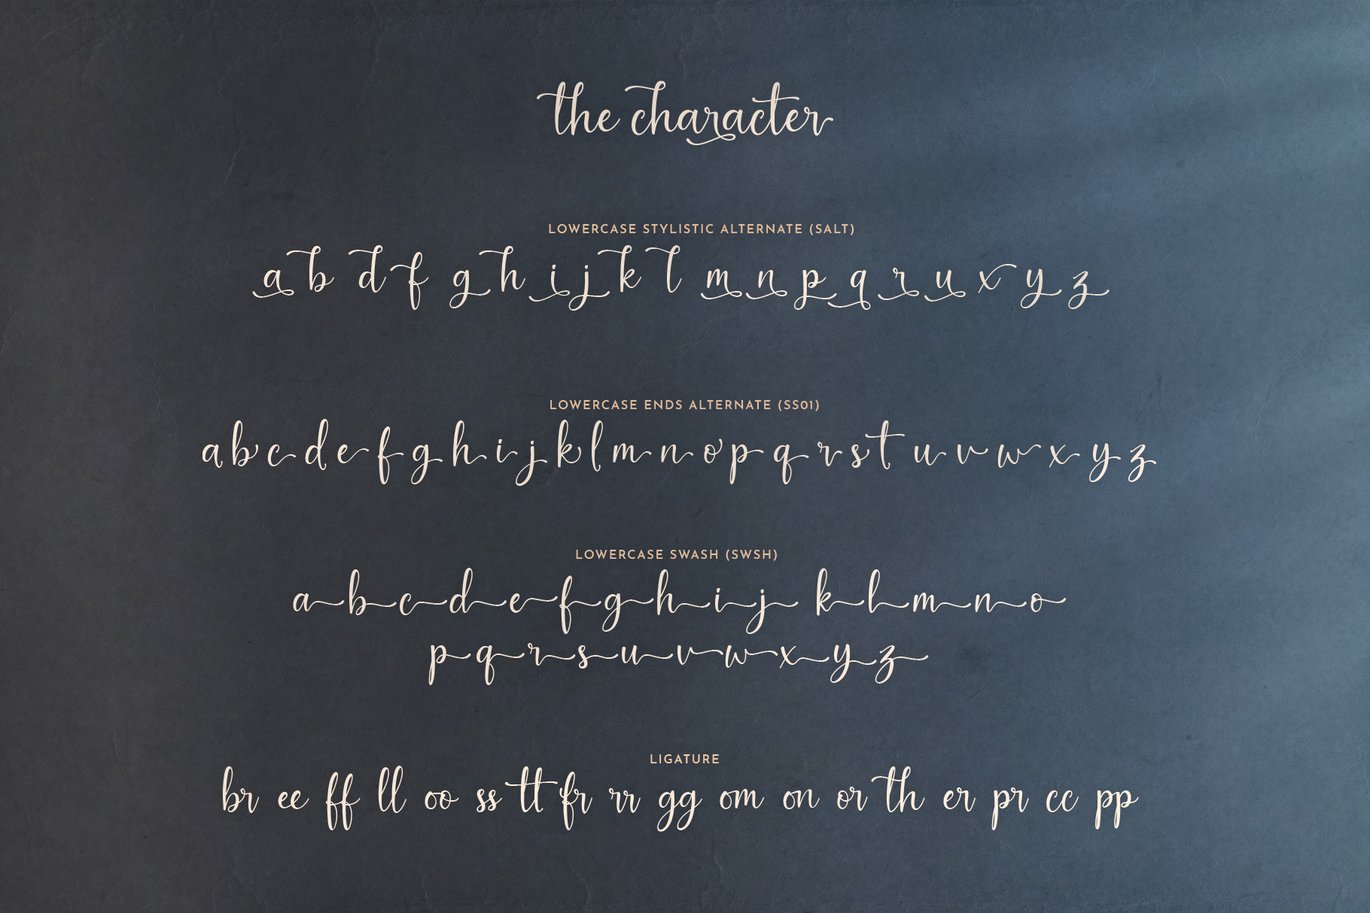 the character
LOWERCASE STYLISTIC ALTERNATE (SALT)
a b d f g h i j k l m n p q r u x y z
LOWERCASE ENDS ALTERNATE (SS01)
a b c d e f g h i j k l m n o p q r s t u v w x y z
LOWERCASE SWASH (SWSH)
a b c d e f g h i j k l m n o
p q r s u v w x y z
LIGATURE
br ee ff ll oo ss tt fr rr gg om on or th er pr cc pp